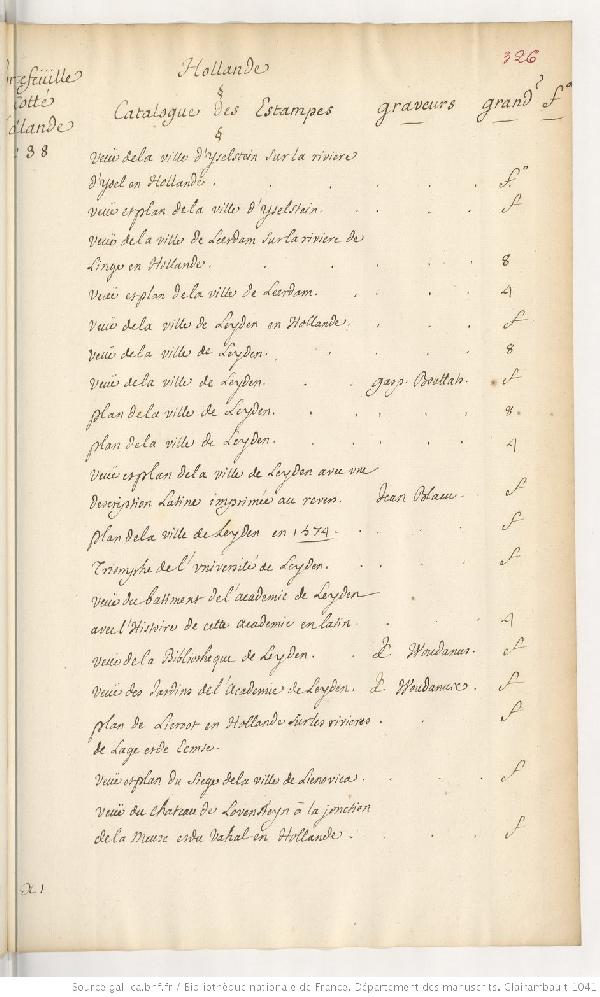 326
Hollande
Catalogue des Estampes graveurs grandr fo
efeüille
otté
ollande
38
Veüe de la ville d'yselstein sur la riviere
d'ysel en Hollande. fo
Veüe et plan de la ville d'yselstein. f
Veüe de la ville de Leerdam sur la riviere de
Linge en Hollande. 8
Veüe et plan de la ville de Leerdam. 4
Veüe de la ville de Leyden en Hollande. f
Veüe de la ville de Leyden. 8
Veüe de la ville de Leyden. gasp. Bouttats. f
plan de la ville de Leyden. 8.
plan de la ville de Leyden. 4
Veüe et plan de la ville de Leyden avec vne
description Latine imprimée au revers. Jean Blaeu. f
plan de la ville de Leyden en 1574. f
Triomphe de l'vniversité de Leyden. f
Veüe du batiment de l'academie de Leyden
avec l'Histoire de cette academie en latin. 4
Veüe de la Bibliotheque de Leyden. Woudanus. f
Veüe des Jardins de l'Academie de Leyden. Woudanus. f
plan de Liesvot en Hollande sur les rivieres f
de Lage et de Eemse.
Veüe et plan du siege de la ville de Lienovica. f
Veüe du chateau de Lovensteyn à la jonction
de la Meuse et du Vahal en Hollande. f
Source gallica.bnf.fr / Bibliothèque nationale de France. Département des manuscrits. Clairambault 1041